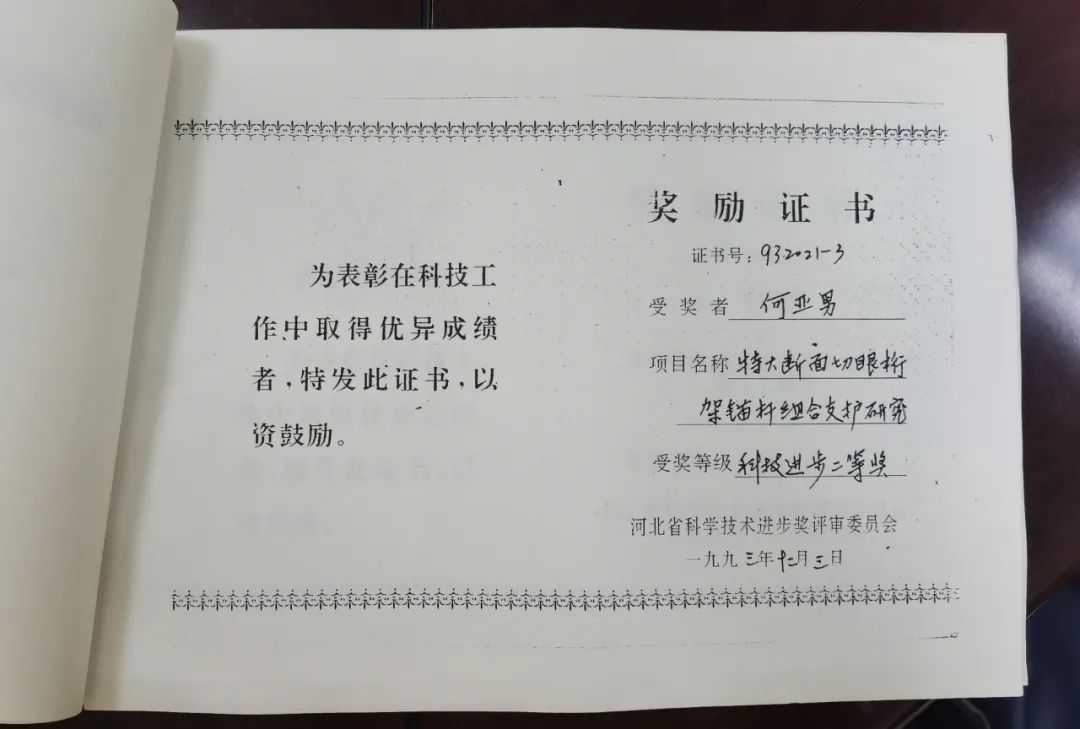 为表彰在科技工
作中取得优异成绩
者，特发此证书，以
资鼓励。
奖励证书
证书号：932021-3
受奖者 何亚男
项目名称 特大断面切眼桁
架锚杆组合支护研究
受奖等级 科技进步二等奖
河北省科学技术进步奖评审委员会
一九九三年十二月三日